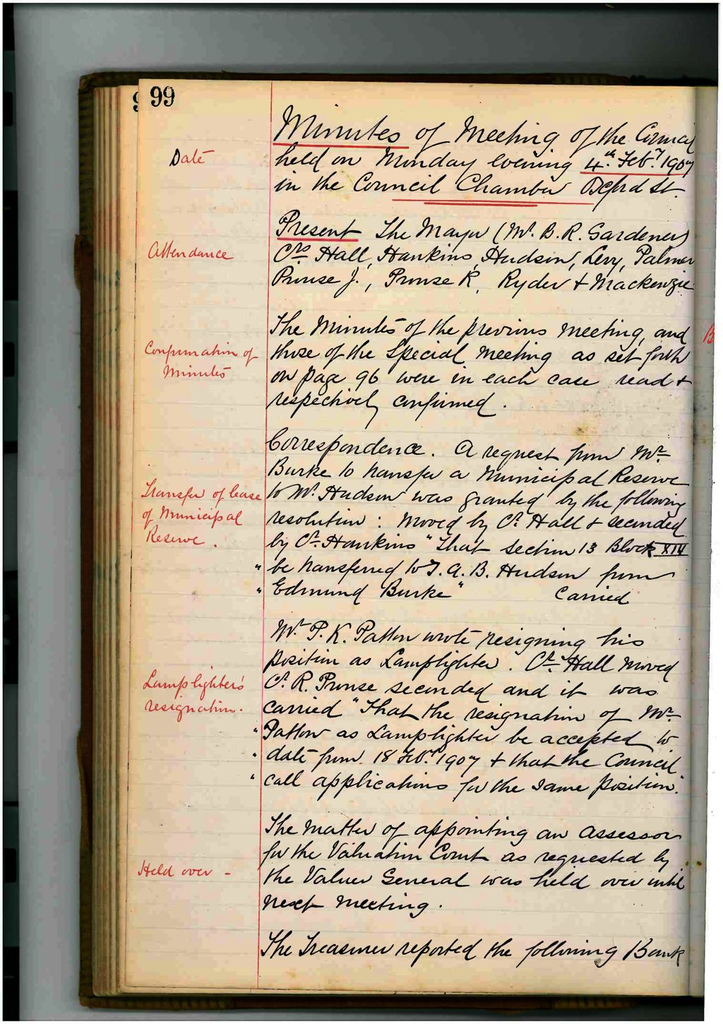 99
Minutes of Meeting of the Council
Date
held on Monday evening 4th Feby 1907
in the Council Chamber Oxford St.
Present The Mayor (Mr. B. R. Gardener)
Attendance
Crs Hall, Hankins Hudson, Levy, Palmer
Prouse J., Prouse R, Ryder & Mackenzie
The Minutes of the previous meeting, and
Confirmation of
Minutes
those of the Special Meeting as set forth
on page 96 were in each case read &
respectively confirmed.
Correspondence. A request from Mr.
Burke to transfer a Municipal Reserve
Transfer of lease
of Municipal
Reserve.
to Mr. Hudson was granted by the following
resolution: Moved by Cr. Hall & seconded
by Cr. Hankins "That section 13 Block XIV
" be transferred to T. A. B. Hudson from
" Edmund Burke" Carried
Mr. P. K. Patton wrote resigning his
position as Lamplighter. Cr. Hall moved
Lamplighter's
resignation.
Cr. R. Prouse seconded and it was
carried "That the resignation of Mr.
" Patton as Lamplighter be accepted to
" date from 18 Feby 1907 & that the Council
" call applications for the same position."
The matter of appointing an assessor
for the Valuation Court as requested by
Held over -
the Valuer General was held over until
next meeting.
The Treasurer reported the following Bank